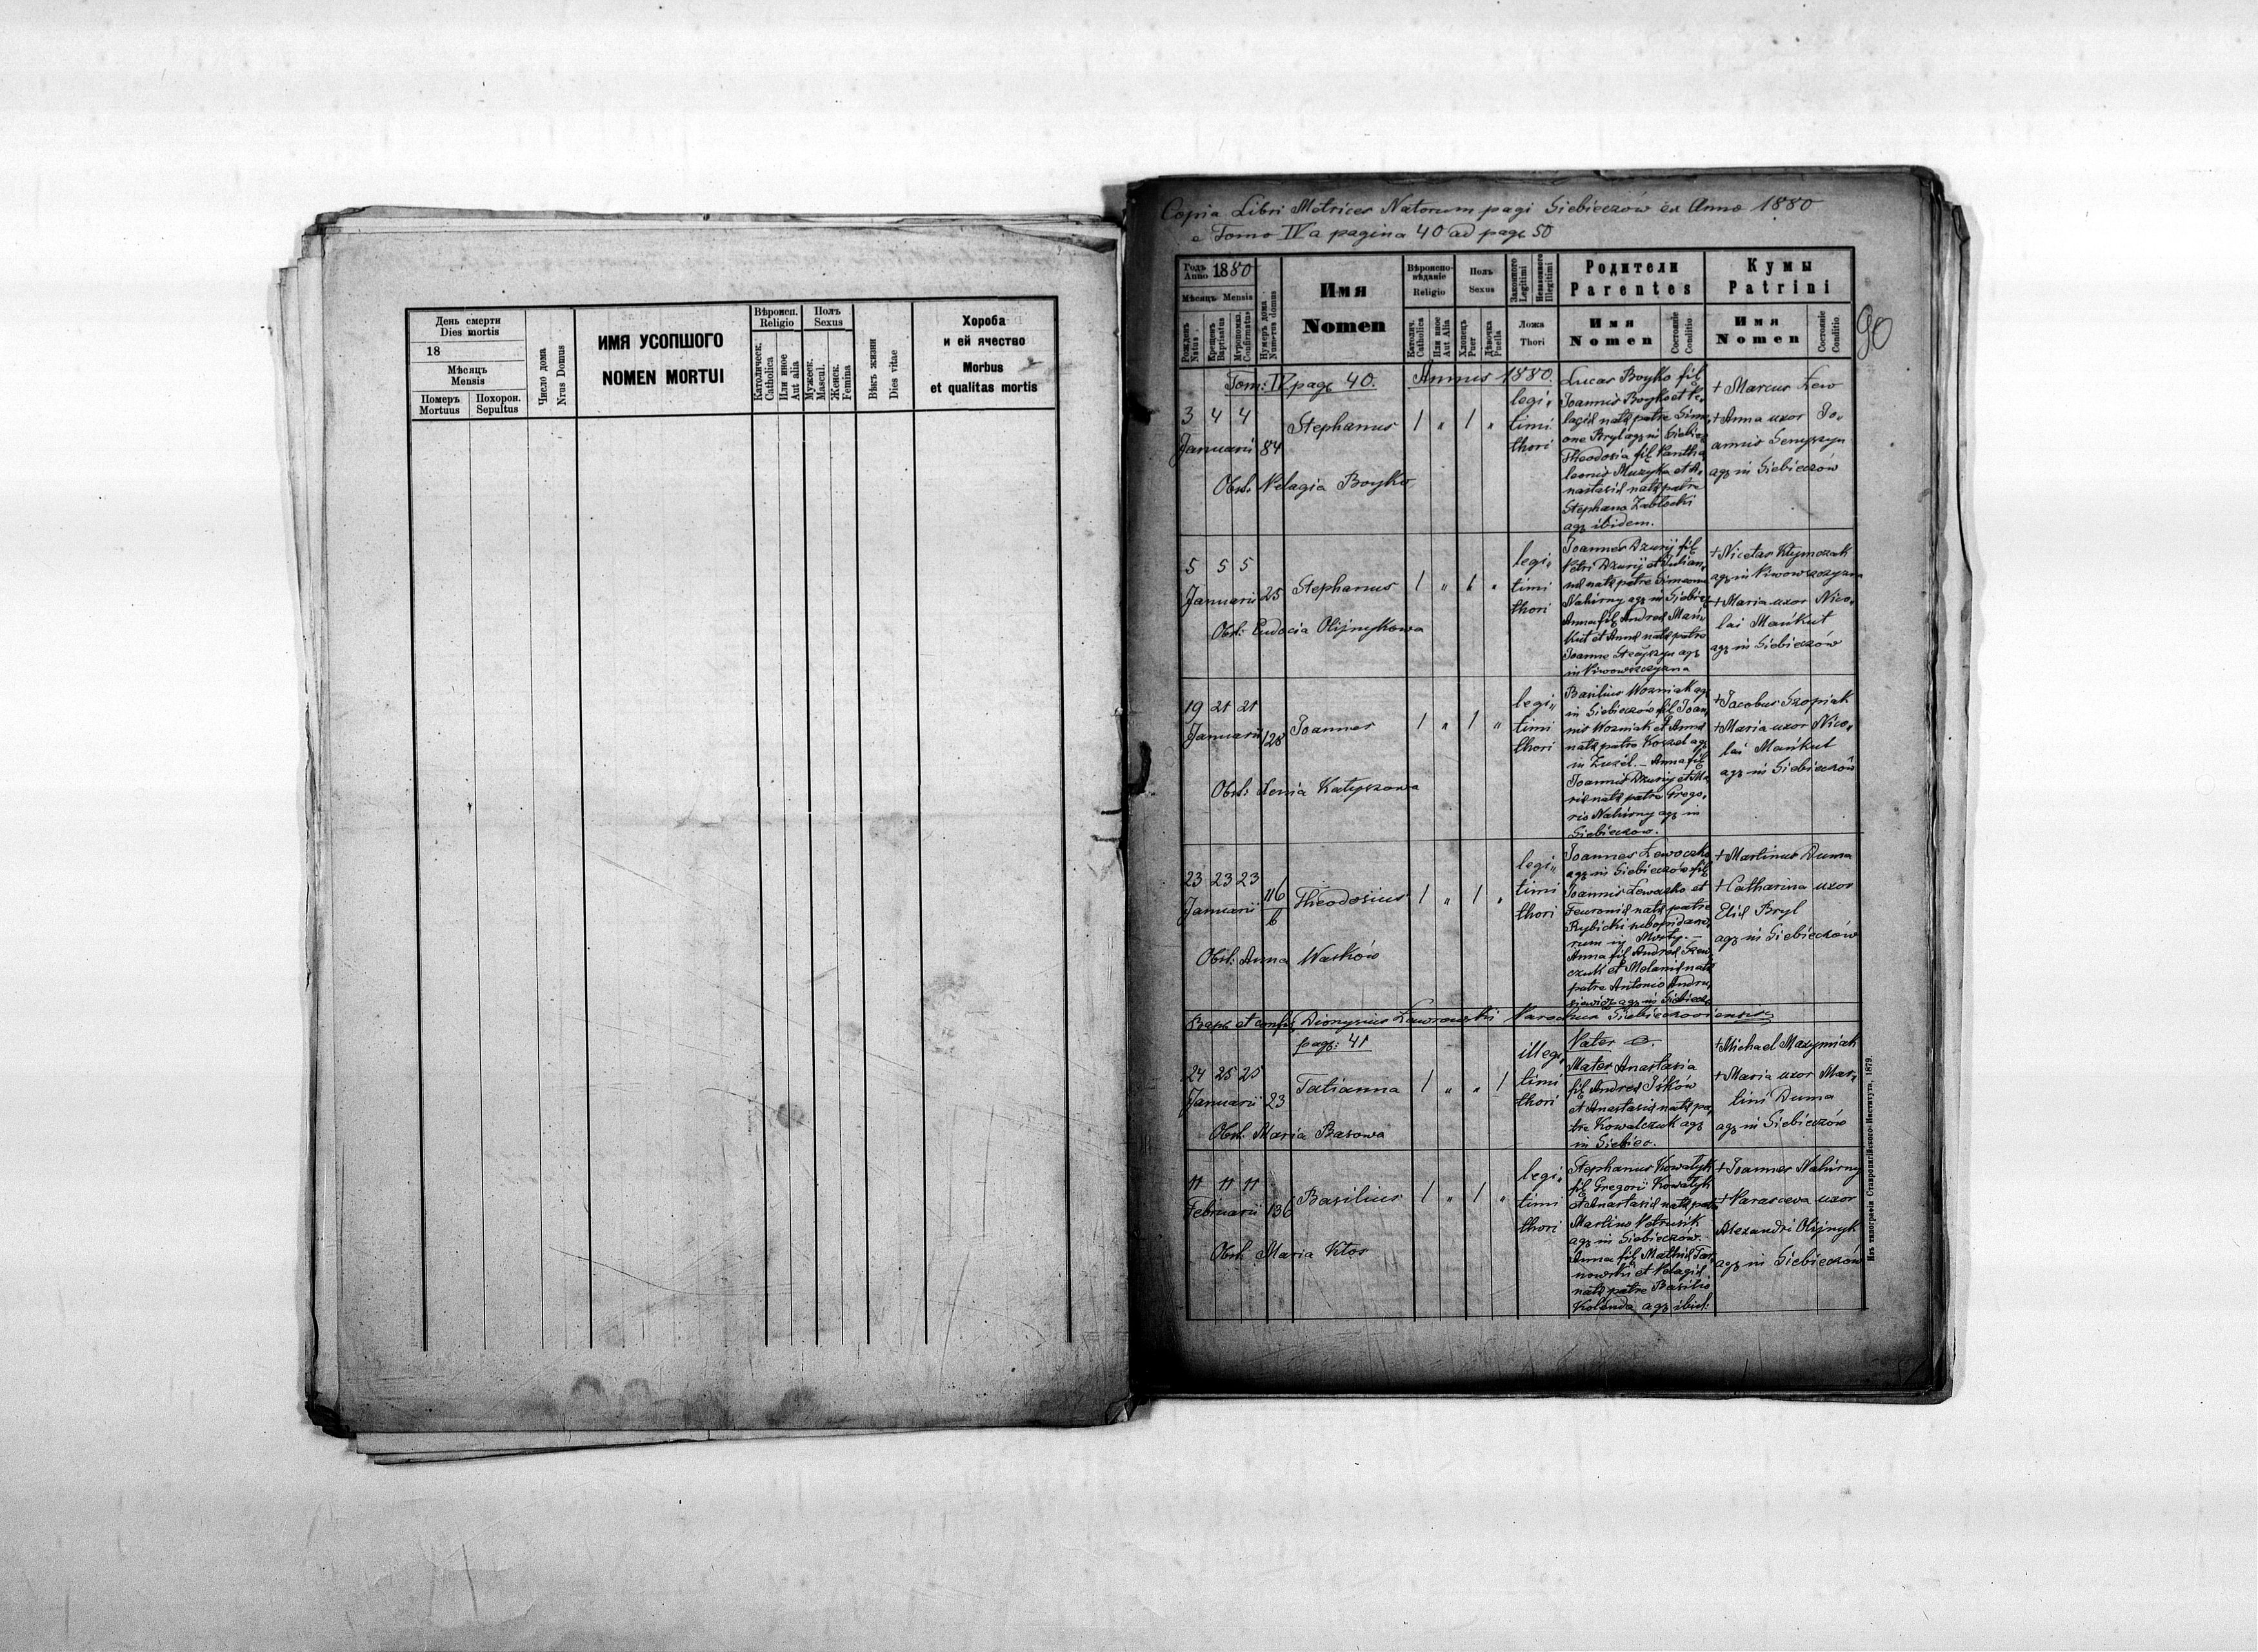 День смерти
Dies mortis
18
Мѣсяцъ
Mensis
Померъ
Mortuus
Похорон.
Sepultus
Число дома
Nrus Domus
ИМЯ УСОПШОГО
NOMEN MORTUI
Вѣроисп.
Religio
Католическ.
Catholica
Или иное
Aut alia
Полъ
Sexus
Мужеск.
Mascul.
Женск.
Femina
Вѣкъ жизни
Dies vitae
Хороба
и ей ячество
Morbus
et qualitas mortis
Copia Libri Metrices Natorum pagi Siebieczów ex Anno 1880
e Tomo IV a pagina 40 ad pag. 50
90
Годъ
Anno 1880
Мѣсяцъ Mensis
Рожденъ
Natus
Крещенъ
Baptisatus
Мѵропомаз.
Confirmatus
Нумеръ дома
Numerus domus
Имя
Nomen
Вѣроиспо-
вѣданіе
Religio
Католич.
Catholica
Или иное
Aut Alia
Полъ
Sexus
Хлопецъ
Puer
Дѣвочка
Puella
Законного
Legitimi
Незаконного
Illegitimi
Ложа
Thori
Родители
Parentes
Имя
Nomen
Состояніе
Conditio
Кумы
Patrini
Имя
Nomen
Состояніе
Conditio
Tom: IV pag. 40. Annus 1880.
3 4 4
Januarii 84
Stephanus
1 " 1 "
legi-
timi
thori
Obst. Pelagia Boyko
Lucas Boyko fil.
Joannis Boyko et Pe-
lagiæ natæ patre Sime-
one Bryl agr. in Siebiecz.
Theodosia fil. Pantha
leonis Muzyka et A-
nastasiæ natæ patre
Stephano Zabłocki
agr. ibidem.
+ Marcus Lew
+ Anna uxor Jo-
annis
agr. in Siebieczów
5 5 5
Januarii 25
Stephanus
1 " 1 "
legi-
timi
thori
Obst: Eudocia Olijnykowa
Joannes Dzurij fil.
Petri Dzurij et Julian-
næ natæ patre Simeone
Nahirny agr. in Siebiecz.
Anna fil. Andreæ Mań-
kut et Annæ natæ patre
Joanne agr.
in Piwowszczyzna
+ Nicetas Klymczak
agr. in Piwowszczyzna
+ Maria uxor Nico-
lai Mańkut
agr. in Siebieczów
19 21 21
Januarii 128
Joannes
1 " 1 "
legi-
timi
thori
Obst: Xenia Katyszowa
Basilius Wozniak agr.
in Siebieczów fil. Joan-
nis Wozniak et Annæ
natæ patre Kozzel agr.
in Zuzel. – Anna fil.
Joannis Dzurij et Ma
riæ natæ patre Grego-
rio Nahirny agr. in
Siebieczów.
+ Jacobus Szopiak
+ Maria uxor Nico-
lai Mańkut
agr. in Siebieczów
23 23 23
Januarii 116
b
Theodosius
1 " 1 "
legi-
timi
thori
Obst: Anna Waśków
Joannes Lewoczko
agr. in Siebieczów fil.
Joannis Lewoczko et
Feuroniæ natæ patre
Rybicki
rum in Mosty. –
Anna fil. Andreæ Szew
czuk et Melaniæ natæ
patre Antonio Andru
siewicz agr. in Siebiecz.
+ Martinus Duma
+ Catharina uxor
Eliæ Bryl
agr. in Siebieczów
Bapt. et conf. Dionysius Laurowski Parochus Siebieczoviensis
pag: 41
24 25 25
Januarii 23
Tatianna
1 " " 1
illegi-
timi
thori
Obst. Maria Basowa
Pater
Mater Anastasia
fil. Andreæ Iśków
et Anastasiæ natæ pa-
tre Kowalczuk agr.
in Siebiec.
+ Michael Maxymiak
+ Maria uxor Mar-
tini Duma
agr. in Siebieczów
11 11 11
Februarii 136
Basilius
1 " 1 "
legi-
timi
thori
Obst. Maria Kłos
Stephanus Kowalyk
fil. Gregorii Kowalyk
et Anastasiæ natæ patre
Martino Petrusik
agr. in Siebieczów. –
Anna fil. Mathiæ Tar-
nowski et Pelagiæ
natæ patre Basilio
Kolenda agr. ibid:
+ Joannes Nahirny
+ Parasceva uxor
Alexandri Olijnyk
agr. in Siebieczów
Изъ типографіи Ставропигійского Института, 1879.